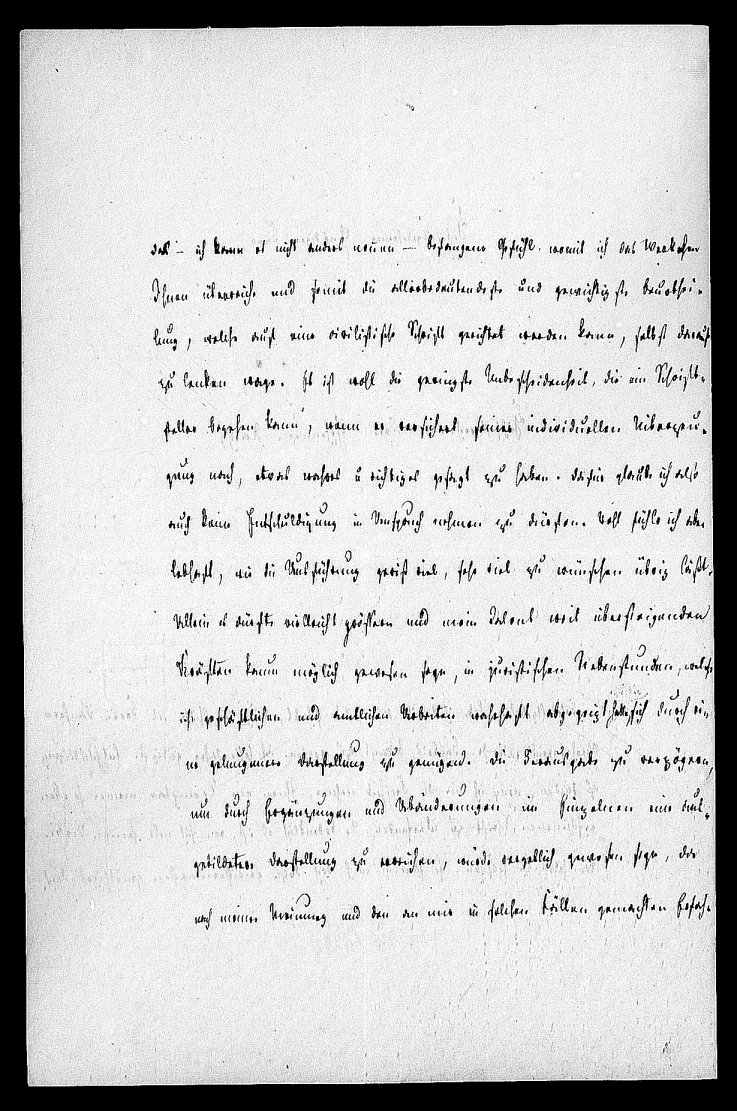 das – ich kann es nicht anders nennen – befangene Gefühl, womit ich das Werkchen
Ihnen überreiche und somit die allerbedeutendste und gewichtigste Beurthei-
lung, welche auf eine civilistische Schrift gerichtet werden kann, selbst darauf
zu lenken wage. Es ist wohl die geringste Unbescheidenheit, die ein Schrift-
steller begehen kann, wenn er versichert seiner individuellen Ueberzeu-
gung nach, etwas wahres u richtiges gesagt zu haben. Dafür glaube ich also
auch keine Entschuldigung in Anspruch nehmen zu dürfen. Wohl fühle ich aber
lebhaft, wie die Ausführung gewiß viel, sehr viel zu wünschen übrig läßt.
Allein es dürfte vielleicht größern und mein Talent weit übersteigenden
Kräften kaum möglich gewesen seyn, in juristischen Nebenstunden, welche
ich geschäftlichen und amtlichen Arbeiten wahrhaft abgegeizt habe, sich durch ei-
ne gelungenere Darstellung zu genügen. Die Herausgabe zu verzögern,
um durch Ergänzungen und Abänderungen im Einzelnen eine aus-
gebildetere Darstellung zu erreichen, würde vergeblich gewesen seyn, da
nach meiner Meinung und den an mir in solchen Fällen gemachten Erfah-